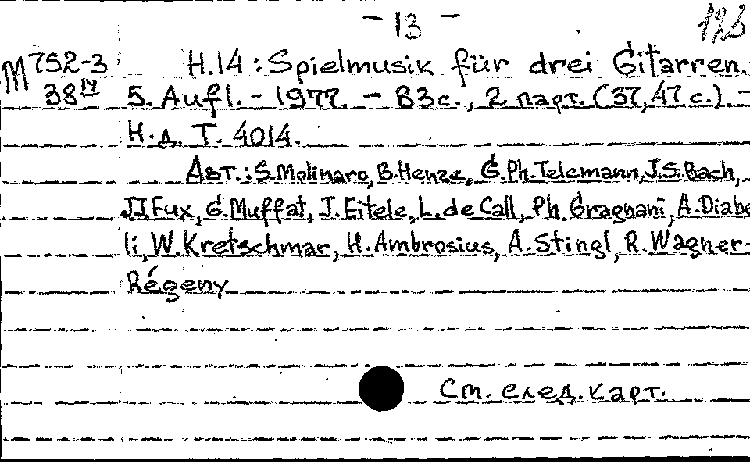 - 13 -
M 752-3 H.14: Spielmusik für drei Gitarren.
38 5. Aufl. - 1977. - 83 с., 2 парт. (37, 47 с.). -
Н.д. Т. 4014.
Авт.: S. Molinaro, B. Henze, G. Ph. Telemann, J. S. Bach,
J. J. Fux, G. Muffat, J. Eitele, L. de Call, Ph. Gragnani, A. Diabe
li, W. Kretschmar, H. Ambrosius, A. Stingl, R. Wagner-
Régeny
См. след. карт.